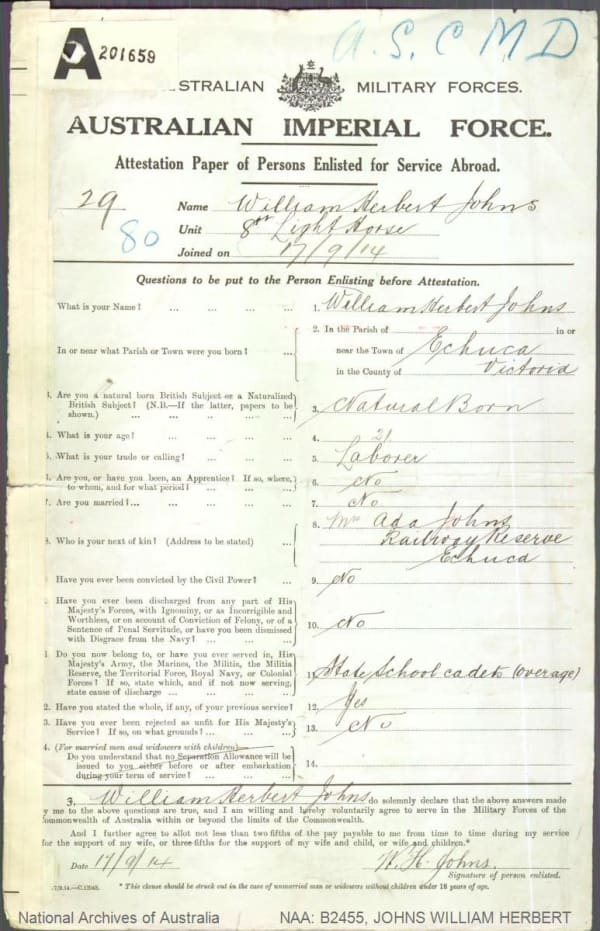 A 201659
A.S.C M D
STRALIAN MILITARY FORCES.
AUSTRALIAN IMPERIAL FORCE.
Attestation Paper of Persons Enlisted for Service Abroad.
29
80
Name William Herbert Johns
Unit 8th Light Horse
Joined on 17/9/14
Questions to be put to the Person Enlisting before Attestation.
What is your Name? ... ... ... ... 1. William Herbert Johns
In or near what Parish or Town were you born? ... 2. In the Parish of in or
near the Town of Echuca
in the County of Victoria
3. Are you a natural born British Subject or a Naturalized
British Subject? (N.B.—If the latter, papers to be
shown.) ... ... ... ... ... 3. Natural Born
4. What is your age? ... ... ... ... 4. 21
5. What is your trade or calling? ... ... ... 5. Laborer
6. Are you, or have you been, an Apprentice? If so, where,
to whom, and for what period? ... ... ... 6. No
7. Are you married? ... ... ... ... ... 7. No
8. Who is your next of kin? (Address to be stated) ... 8. Mrs Ada Johns
Railway Reserve
Echuca
Have you ever been convicted by the Civil Power? ... 9. No
Have you ever been discharged from any part of His
Majesty's Forces, with Ignominy, or as Incorrigible and
Worthless, or on account of Conviction of Felony, or of a
Sentence of Penal Servitude, or have you been dismissed
with Disgrace from the Navy? ... ... ... 10. No
1. Do you now belong to, or have you ever served in, His
Majesty's Army, the Marines, the Militia, the Militia
Reserve, the Territorial Force, Royal Navy, or Colonial
Forces? If so, state which, and if not now serving,
state cause of discharge ... ... ... ... 11. State School cadets (over age)
2. Have you stated the whole, if any, of your previous service? 12. Yes
3. Have you ever been rejected as unfit for His Majesty's
Service? If so, on what grounds? ... ... ... 13. No
4. (For married men and widowers with children)
Do you understand that no Separation Allowance will be
issued to you either before or after embarkation
during your term of service? ... ... ... 14.
3. William Herbert Johns do solemnly declare that the above answers made
y me to the above questions are true, and I am willing and hereby voluntarily agree to serve in the Military Forces of the
ommonwealth of Australia within or beyond the limits of the Commonwealth.
And I further agree to allot not less than two fifths of the pay payable to me from time to time during my service
for the support of my wife, or three-fifths for the support of my wife and child, or wife and children.*
Date 17/9/14 W. H. Johns.
Signature of person enlisted.
* This clause should be struck out in the case of unmarried men or widowers without children under 18 years of age.
National Archives of Australia NAA: B2455, JOHNS WILLIAM HERBERT